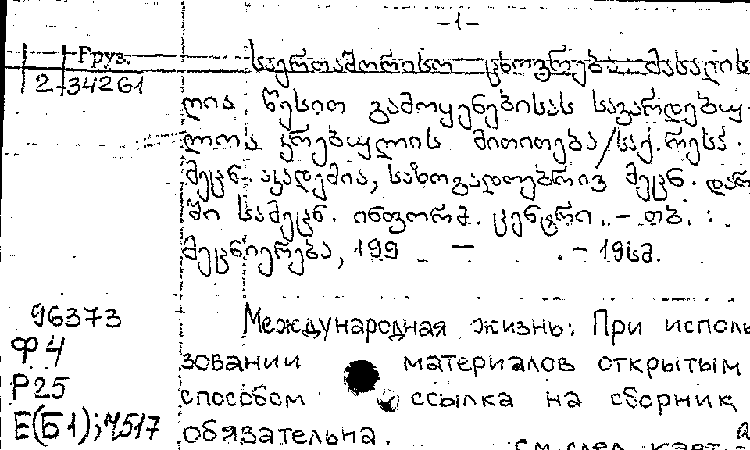 -1-
Груз.
2-34261
საერთაშორისო ცხოვრება. მასალის
ღია წესით გამოყენებისას სავალდებუ-
ლოა კრებულის მითითება/საქ. რესპ.
მეცნ. აკადემია, საზოგადოებრივ მეცნ. დარგ
ში სამეცნ. ინფორმ. ცენტრი. - თბ. :
მეცნიერება, 199 - . - 19სმ.
96373
Ф4
Р25
Е(Б1);7517
Международная жизнь: При исполь
зовании материалов открытым
способом ссылка на сборник
обязательна.
см. след. карт.